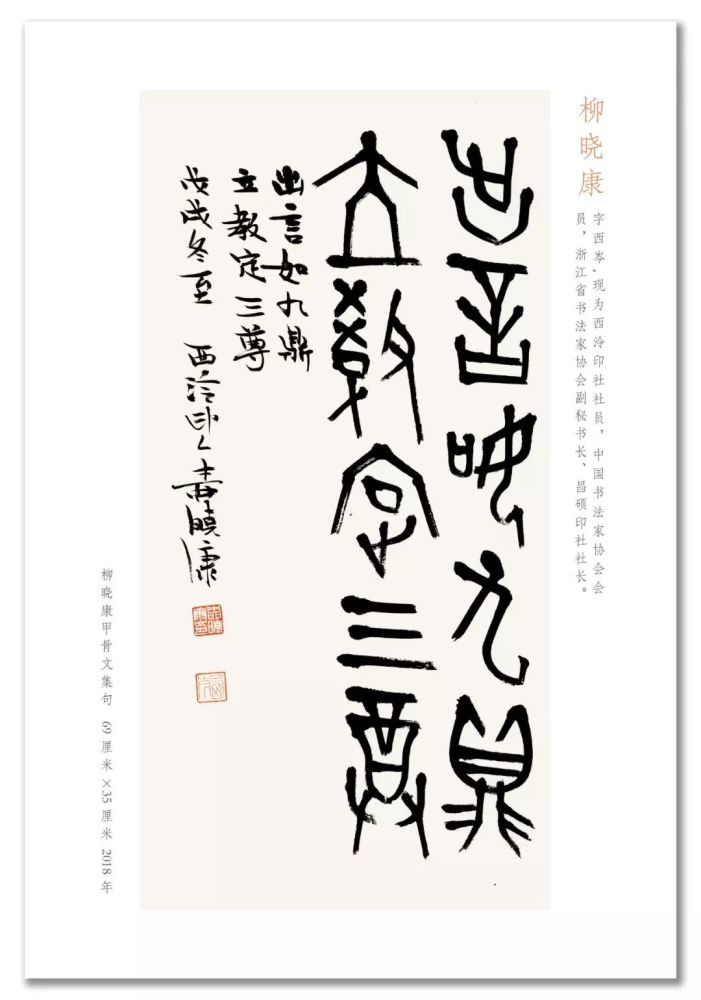 柳晓康
字西岑,现为西泠印社社员,中国书法家协会会
员,浙江省书法家协会副秘书长、昌硕印社社长。
出言如九鼎
立教定三尊
出言如九鼎
立教定三尊
戊戌冬至 西泠印人 晓康
柳晓康甲骨文集句 69厘米×35厘米 2018年